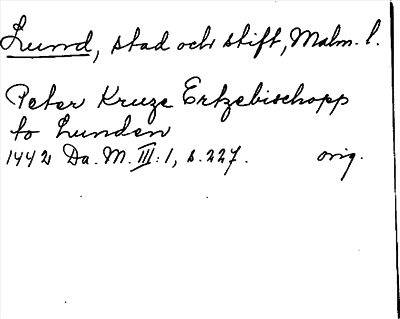 Lund, stad och stift, Malm. l.
Peter Kruze Ertzebischopp
to Lunden
1442 Da. M. III: 1, s. 227. orig.